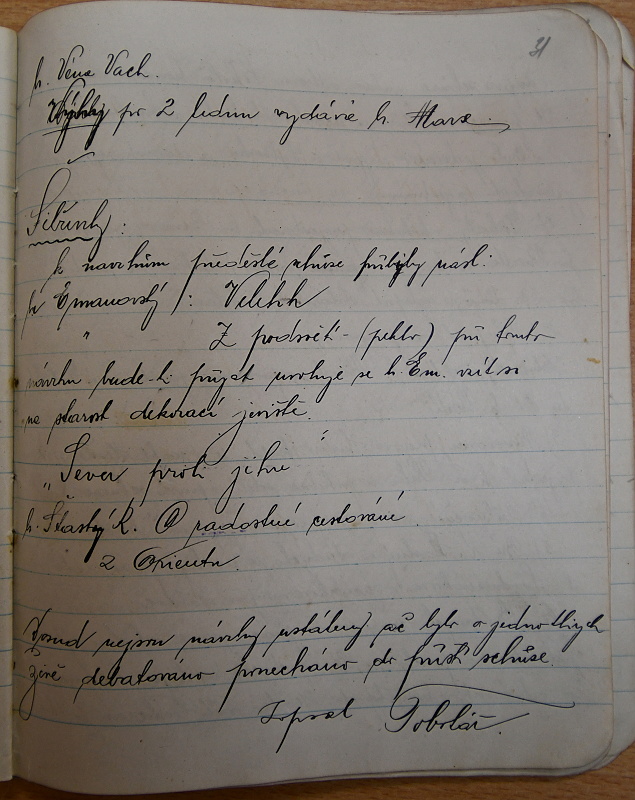 31
h. Véna Vach.
Výhly po 2 lednu vydává h. Marx.
Šibřinky:
k návrhům předešlé schůze přibyly násl:
h. Emanovský: Velehh
" Z podsvětí - (peklo) při tomto
návrhu bude-li přijat uvoluje se h. Em. vzít si
na starost dekoraci jeviště.
„Sever proti jihu"
h. Šťastný K. ① radostné cestování
2 Orientu.
Dosud nejsou návrhy ustáleny ač bylo o jednotlivých
živě debatováno ponecháno do příští schůze.
Zapsal